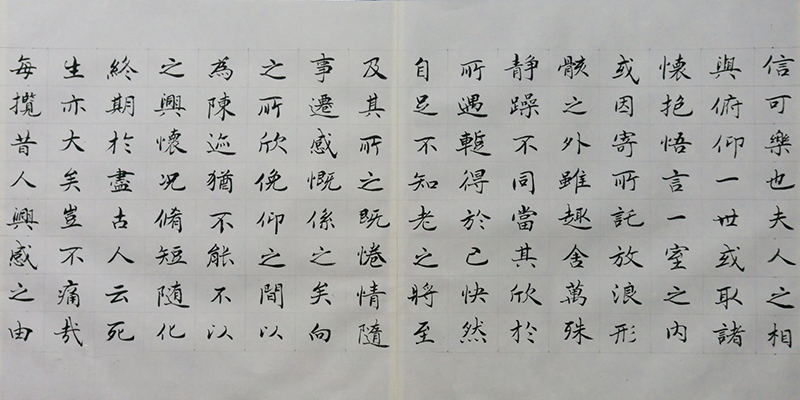 信可樂也夫人之相
與俯仰一世或取諸
懷抱悟言一室之內
或因寄所託放浪形
骸之外雖趣舍萬殊
靜躁不同當其欣於
所遇蹔得於己快然
自足不知老之將至
及其所之既惓情隨
事遷感慨係之矣向
之所欣俛仰之間以
為陳迹猶不能不以
之興懷况脩短隨化
終期於盡古人云死
生亦大矣豈不痛哉
每攬昔人興感之由